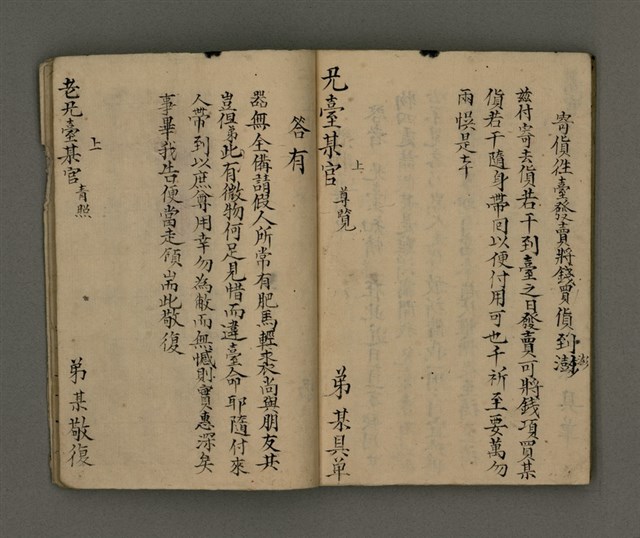 寄貨往臺發賣將錢買貨到澎
茲付寄去貨若干到臺之日發賣可將錢項買某
貨若干隨身帶回以便付用可也千祈至要萬勿
兩悞是幸
兄臺某官 上 尊覧 弟某具单
答有
器無全備請假人所常有肥馬輕裘尚與朋友共
豈但弟此有微物何足見惜而違臺命耶隨付來
人帶到以庶尊用幸勿為敝而無憾則實惠深矣
事畢我告便當走領耑此敬復
老兄臺某官 上 青照 弟某敬復